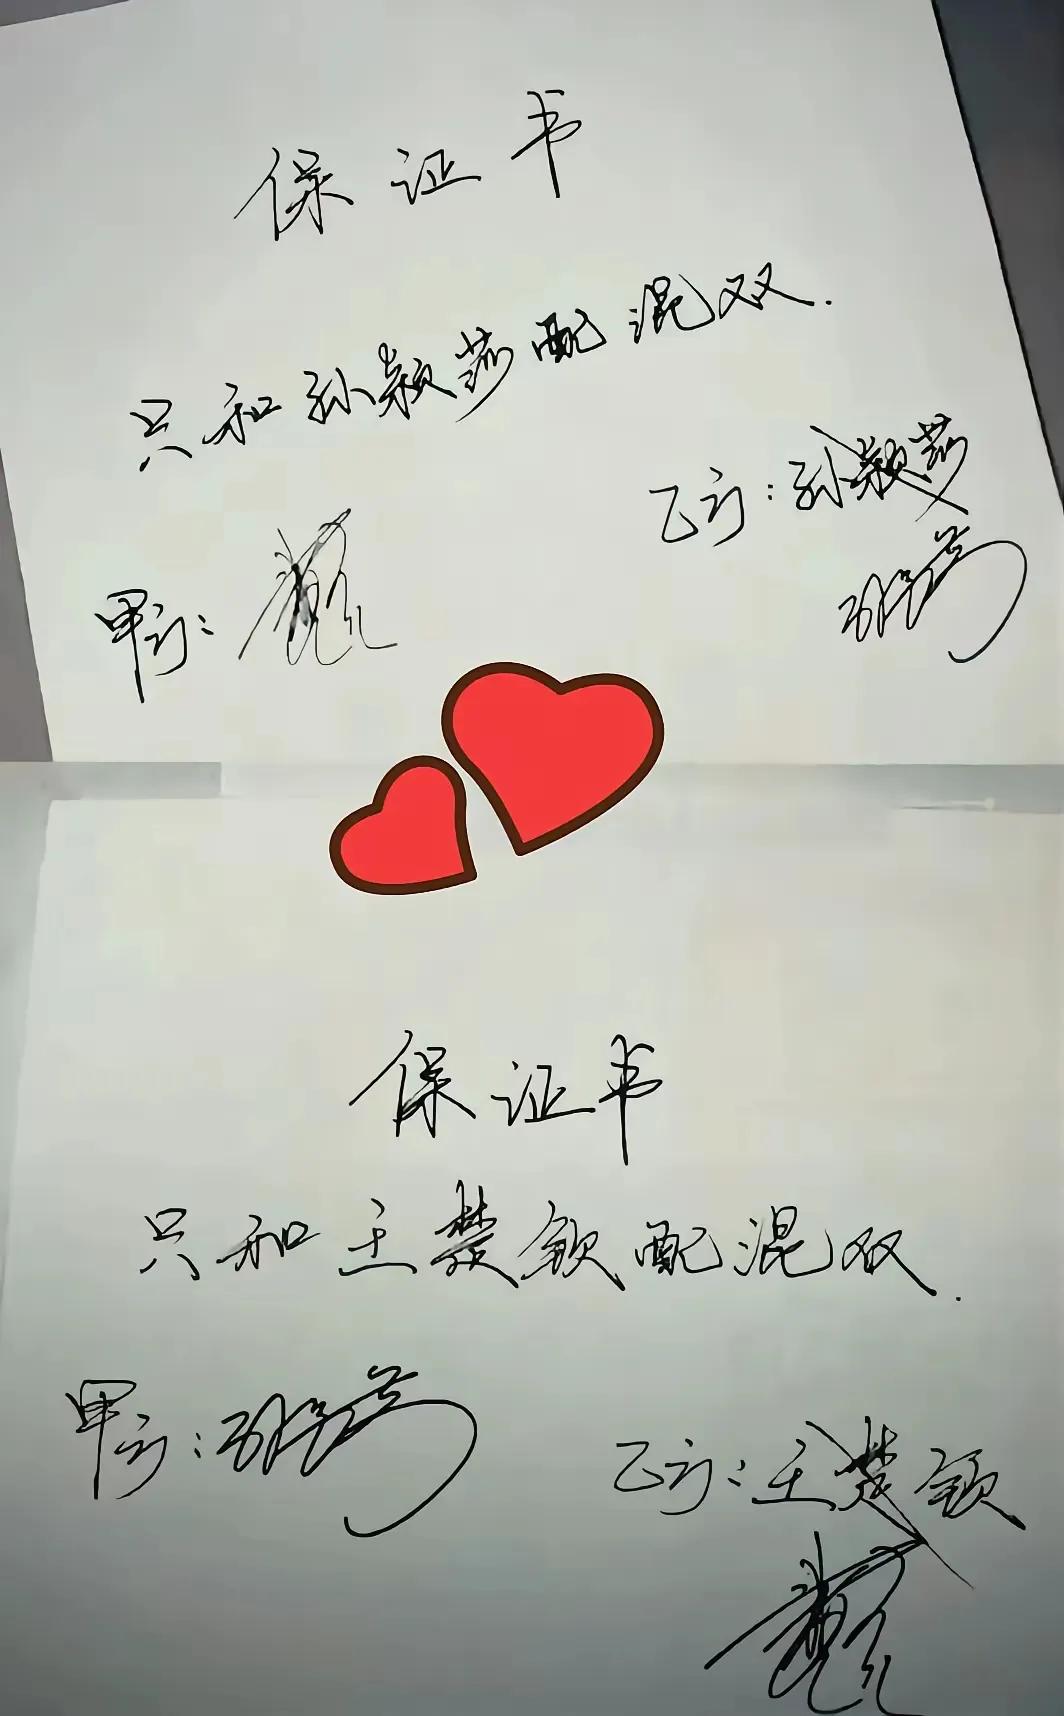 保证书
只和孙颖莎配混双.
乙方:孙颖莎
甲方:
保证书
只和王楚钦配混双.
甲方:
乙方:王楚钦